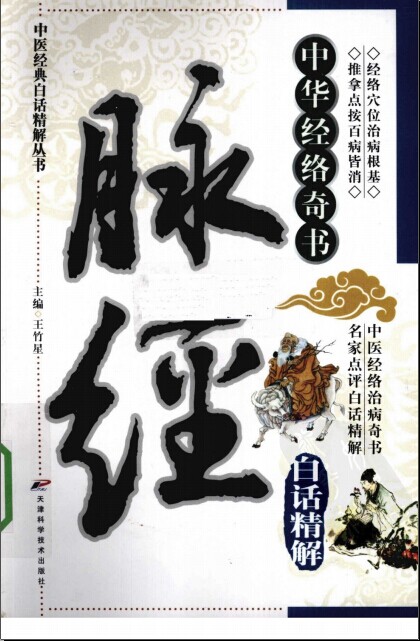 中医经典白话精解丛书
主编◇王竹星
天津科学技术出版社
脉经
中华经络奇书
◇经络穴位治病根基◇
◇推拿点按百病皆消◇
中医经络治病奇书
名家点评白话精解
白话精解